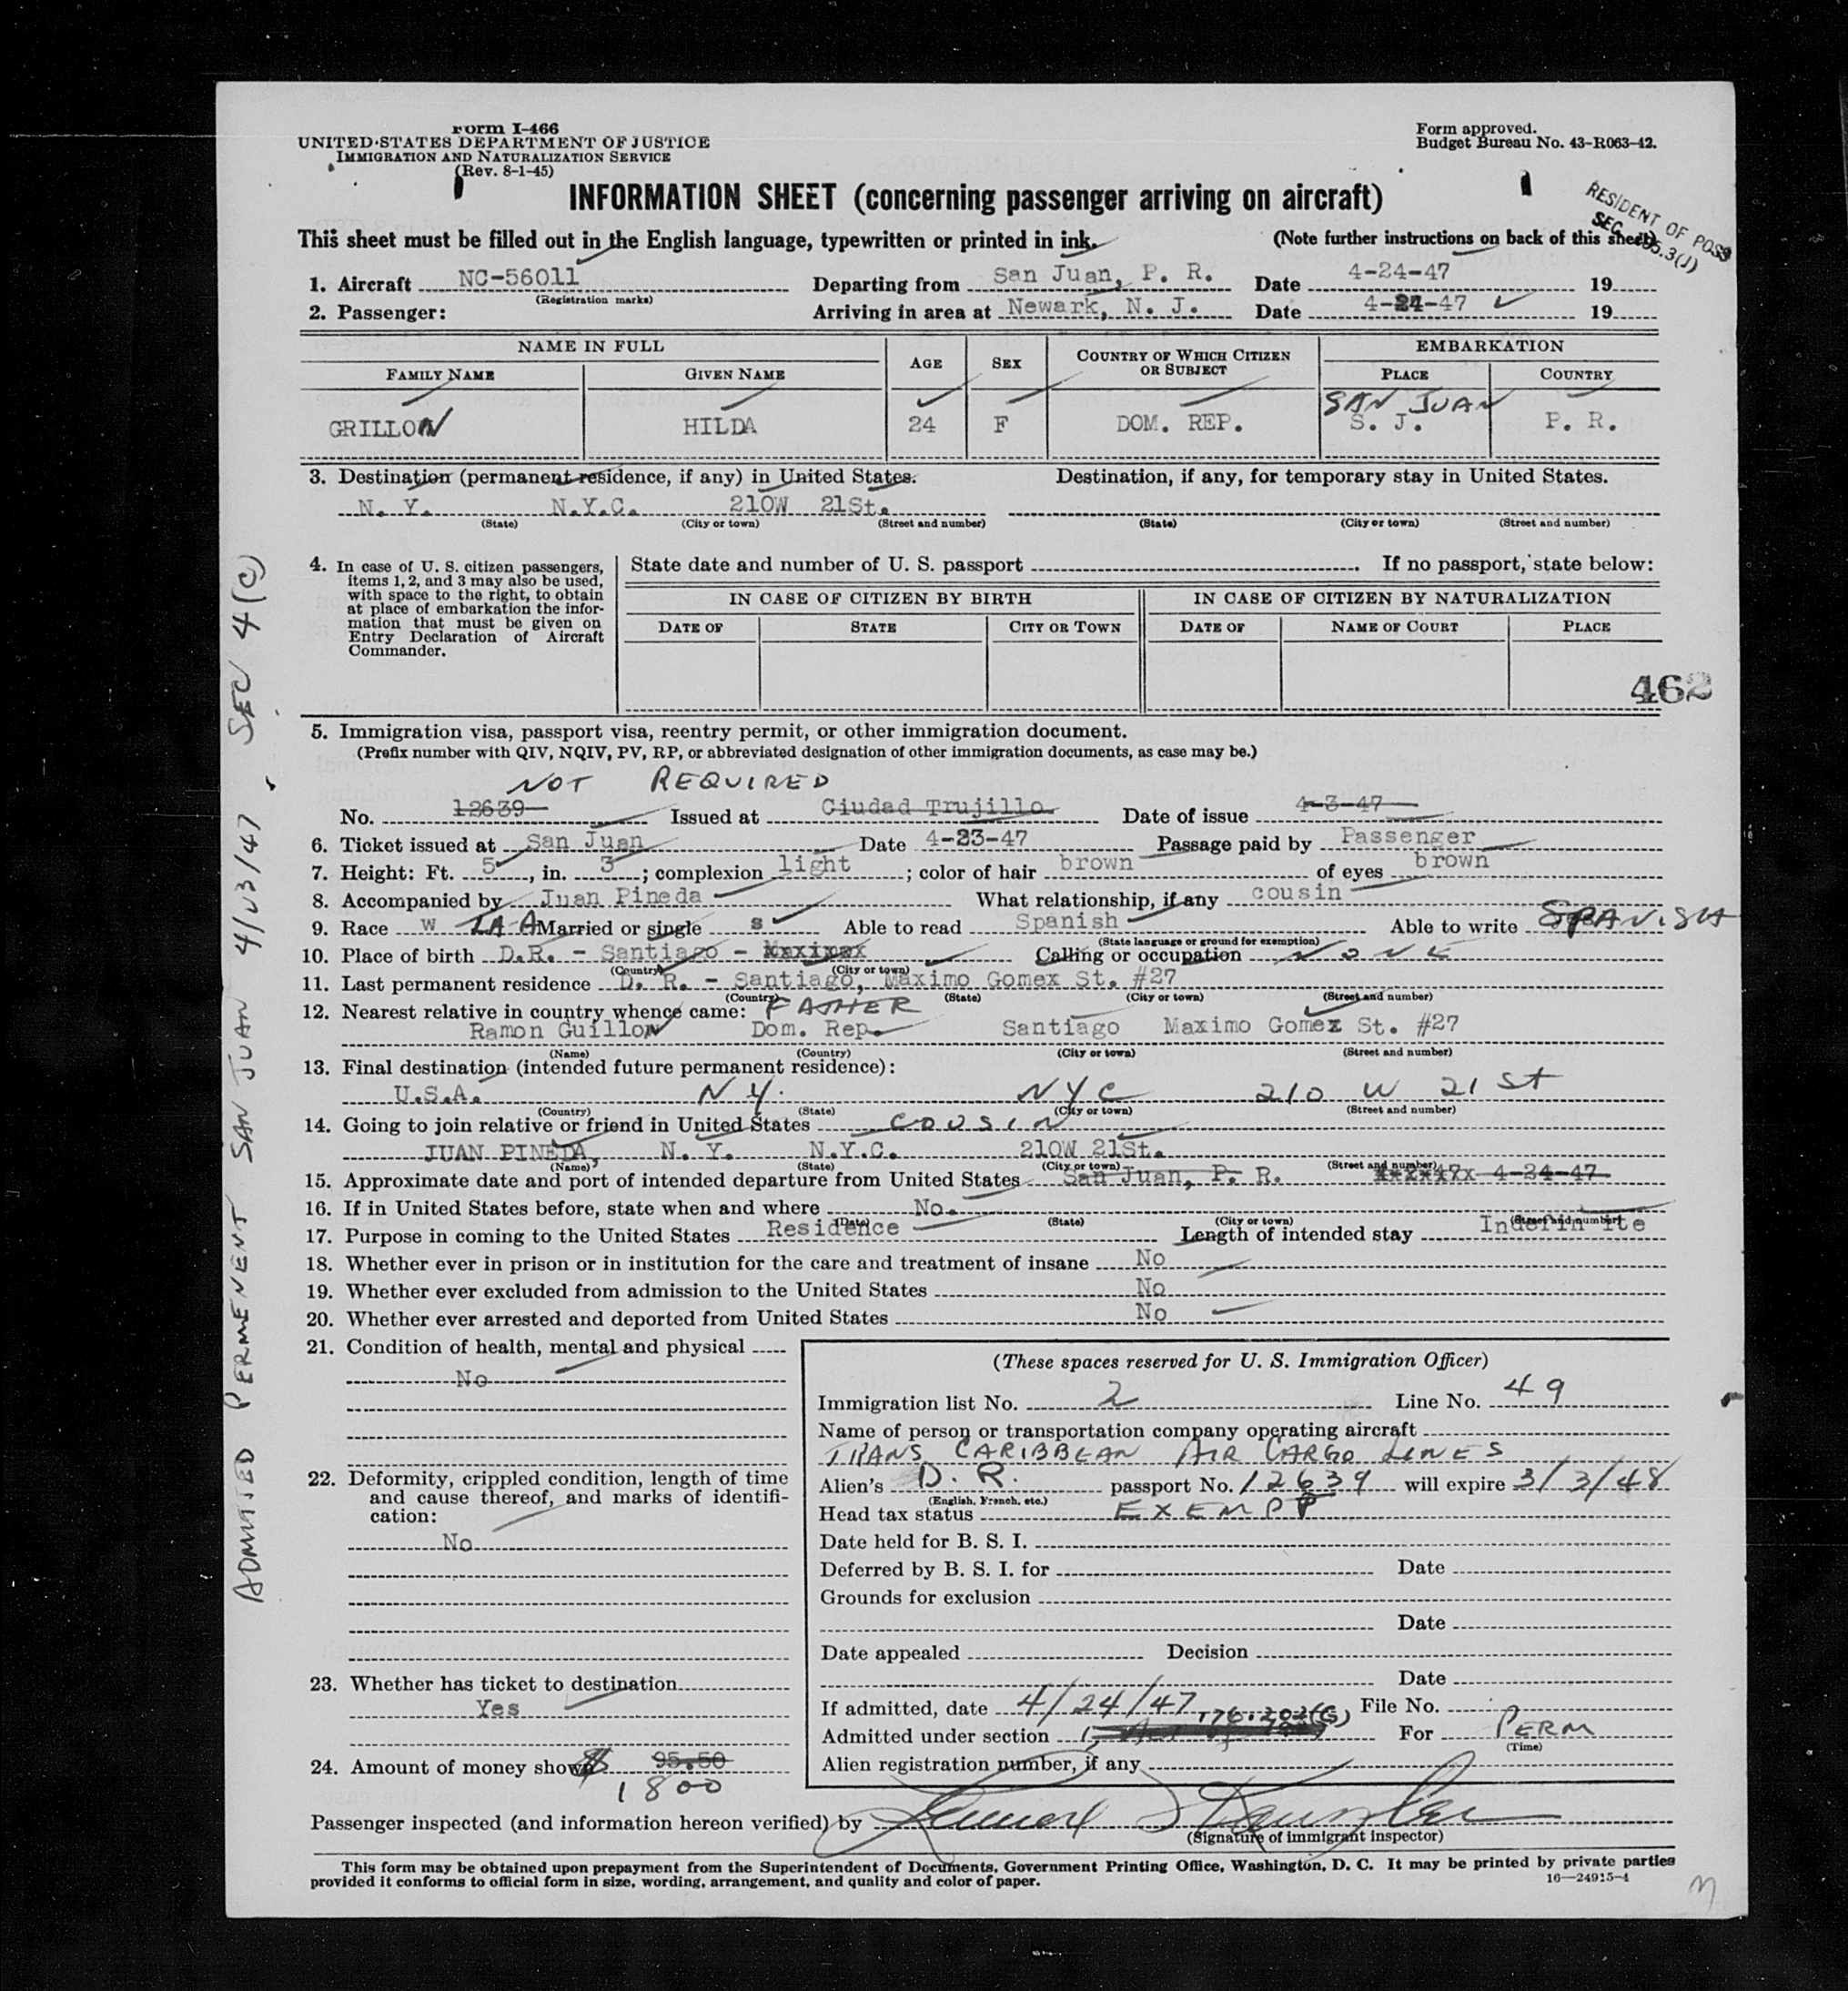 Form I-466
UNITED STATES DEPARTMENT OF JUSTICE
IMMIGRATION AND NATURALIZATION SERVICE
(Rev. 8-1-45)
Form approved.
Budget Bureau No. 43-R063-42.
INFORMATION SHEET (concerning passenger arriving on aircraft)
RESIDENT OF POSS
SEC 175.3(J)
This sheet must be filled out in the English language, typewritten or printed in ink. (Note further instructions on back of this sheet)
1. Aircraft NC-56011 Departing from San Juan, P. R. Date 4-24-47 19
(Registration marks)
2. Passenger: Arriving in area at Newark, N. J. Date 4-24-47 19
NAME IN FULL AGE SEX COUNTRY OF WHICH CITIZEN OR SUBJECT EMBARKATION
FAMILY NAME GIVEN NAME PLACE COUNTRY
SAN JUAN
GRILLON HILDA 24 F DOM. REP. S. J. P. R.
3. Destination (permanent residence, if any) in United States. Destination, if any, for temporary stay in United States.
N. Y. N.Y.C. 210W 21St.
(State) (City or town) (Street and number) (State) (City or town) (Street and number)
4. In case of U. S. citizen passengers, items 1, 2, and 3 may also be used, with space to the right, to obtain at place of embarkation the information that must be given on Entry Declaration of Aircraft Commander.
State date and number of U. S. passport . If no passport, state below:
IN CASE OF CITIZEN BY BIRTH IN CASE OF CITIZEN BY NATURALIZATION
DATE OF STATE CITY OR TOWN DATE OF NAME OF COURT PLACE
462
5. Immigration visa, passport visa, reentry permit, or other immigration document.
(Prefix number with QIV, NQIV, PV, RP, or abbreviated designation of other immigration documents, as case may be.)
NOT REQUIRED
No. 12639 Issued at Ciudad Trujillo Date of issue 4-3-47
6. Ticket issued at San Juan Date 4-23-47 Passage paid by Passenger
7. Height: Ft. 5, in. 3; complexion light; color of hair brown of eyes brown
8. Accompanied by Juan Pineda What relationship, if any cousin
9. Race w LA A Married or single s Able to read Spanish Able to write SPANISH
(State language or ground for exemption)
10. Place of birth D.R. - Santiago - Calling or occupation NONE
(Country) (City or town)
11. Last permanent residence D. R. - Santiago, Maximo Gomex St. #27
(Country) (State) (City or town) (Street and number)
12. Nearest relative in country whence came: FATHER
Ramon Guillon Dom. Rep. Santiago Maximo Gomez St. #27
(Name) (Country) (City or town) (Street and number)
13. Final destination (intended future permanent residence):
U.S.A. N Y. NYC 210 W 21 St
(Country) (State) (City or town) (Street and number)
14. Going to join relative or friend in United States COUSIN
JUAN PINEDA, N. Y. N.Y.C. 210W 21St.
(Name) (State) (City or town) (Street and number)
15. Approximate date and port of intended departure from United States San Juan, P. R. 4-24-47
16. If in United States before, state when and where No.
(Date) (State) (City or town) (Street and number)
17. Purpose in coming to the United States Residence Length of intended stay Indefinite
18. Whether ever in prison or in institution for the care and treatment of insane No
19. Whether ever excluded from admission to the United States No
20. Whether ever arrested and deported from United States No
21. Condition of health, mental and physical
No
22. Deformity, crippled condition, length of time and cause thereof, and marks of identification:
No
23. Whether has ticket to destination
Yes
24. Amount of money shown $ 95.50
1800
(These spaces reserved for U. S. Immigration Officer)
Immigration list No. 2 Line No. 49
Name of person or transportation company operating aircraft
TRANS CARIBBEAN AIR CARGO LINES
Alien's D. R. passport No. 12639 will expire 3/3/48
(English, French, etc.)
Head tax status EXEMPT
Date held for B. S. I.
Deferred by B. S. I. for Date
Grounds for exclusion
Date
Date appealed Decision
Date
If admitted, date 4/24/47 File No.
176.202(G)
Admitted under section For PERM
(Time)
Alien registration number, if any
Passenger inspected (and information hereon verified) by
(Signature of immigrant inspector)
This form may be obtained upon prepayment from the Superintendent of Documents, Government Printing Office, Washington, D. C. It may be printed by private parties
provided it conforms to official form in size, wording, arrangement, and quality and color of paper.
16—24915-4
ADMITTED PERMENENT SAN JUAN 4/23/47, SEC 4(C)